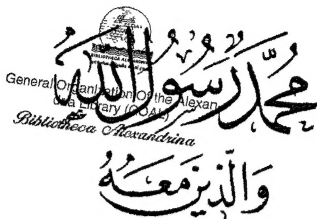 محمد رسول الله
General Organization Of the Alexan-
dria Library (GOAL)
Bibliotheca Alexandrina
وَالَّذِينَ مَعَهُ